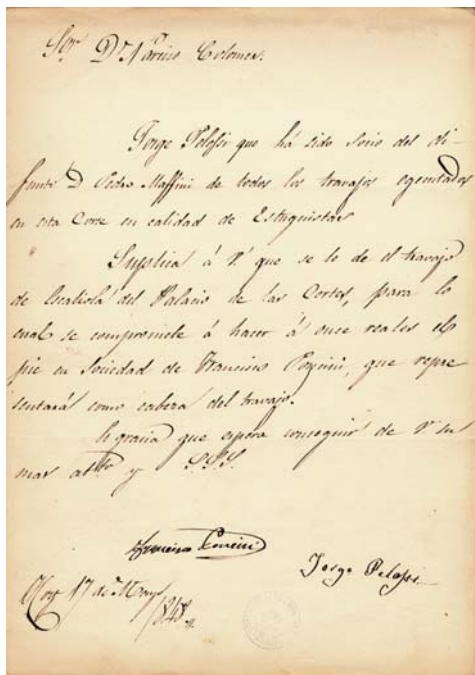 Sor. Dn. Narciso Colomer.
Jorge Pelossi que há sido socio del di-
funto D. Pedro Maffini de todos los travajos egecutados
en esta Corte en calidad de Estuquistas
Suplica á V. que se le de el travajo
de Escaliola del Palacio de las Cortes, para lo
cual se compromete á hacer á once reales el
pie en Sociedad de Francisco Pognini, que repre
sentará como cabeza del travajo.
Es gracia que espera conseguir de V. su
mas atto. y S.S.S.
Francisco
Jorge Pelossi
Hoy 17 de Mayo
1848